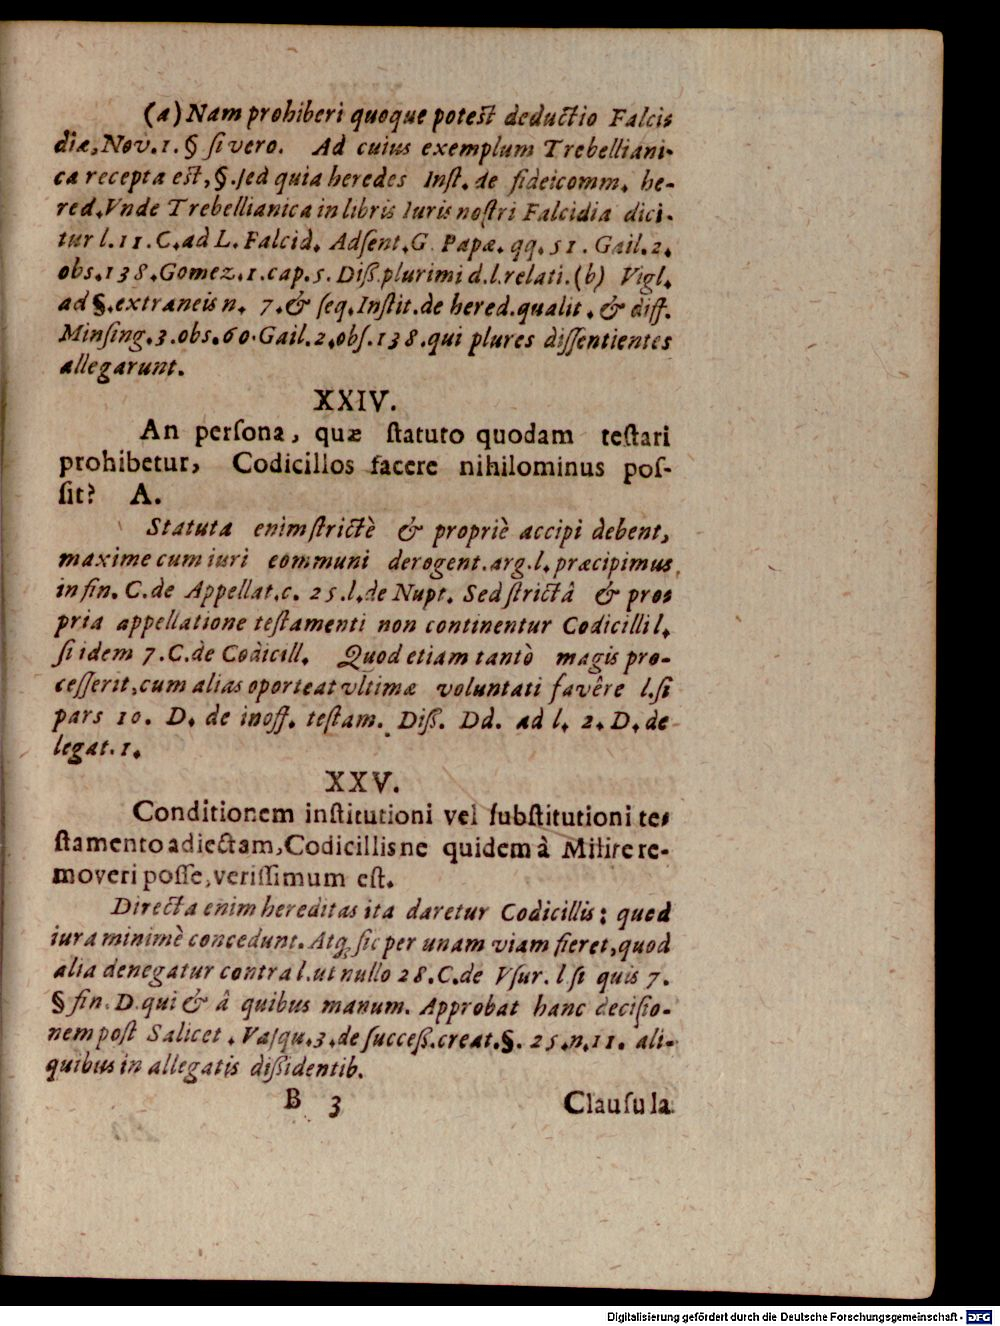 (a) Nam prohiberi quoque poteſt deductio Falci-
diæ, Nov. 1. § ſi vero. Ad cuius exemplum Trebelliani-
ca recepta eſt, §. ſed quia heredes Inſt. de fideicomm. he-
red. Vnde Trebellianica in libris Iuris noſtri Falcidia dici-
tur l. 11. C. ad L. Falcid. Adſent. G. Papæ. qq. 51. Gail. 2.
obs. 138. Gomez. 1. cap. 5. Diß. plurimi d. l. relati. (b) Vigl.
ad §. extraneis n. 7. & ſeq. Inſtit. de hered. qualit. & diff.
Minſing. 3. obs. 60. Gail. 2. obſ. 138. qui plures diſſentientes
allegarunt.
XXIV.
An perſona, quæ ſtatuto quodam teſtari
prohibetur, Codicillos facere nihilominus poſ-
ſit? A.
Statuta enim ſtrictè & propriè accipi debent,
maxime cum iuri communi derogent. arg. l. præcipimus
in fin. C. de Appellat. c. 25. l. de Nupt. Sed ſtrictâ & pro-
pria appellatione teſtamenti non continentur Codicilli l.
ſi idem 7. C. de Codicill. Quod etiam tantò magis pro-
ceſſerit, cum alias oporteat vltimæ voluntati favêre l. ſi
pars 10. D. de inoff. teſtam. Diß. Dd. ad l. 2. D. de
legat. 1.
XXV.
Conditionem inſtitutioni vel ſubſtitutioni te-
ſtamento adiectam, Codicillis ne quidem à Milite re-
moveri poſſe, veriſſimum eſt.
Directa enim hereditas ita daretur Codicillis; quod
iura minimè concedunt. Atq; ſic per unam viam fieret, quod
alia denegatur contra l. ut nullo 28. C. de Vſur. l ſi quis 7.
§ fin. D. qui & â quibus manum. Approbat hanc deciſio-
nem poſt Salicet. Vaſqu. 3. de ſucceß. creat. §. 25. n. 11. ali-
quibus in allegatis dißidentib.
B 3 Clauſula
Digitalisierung gefördert durch die Deutsche Forschungsgemeinschaft - DFG